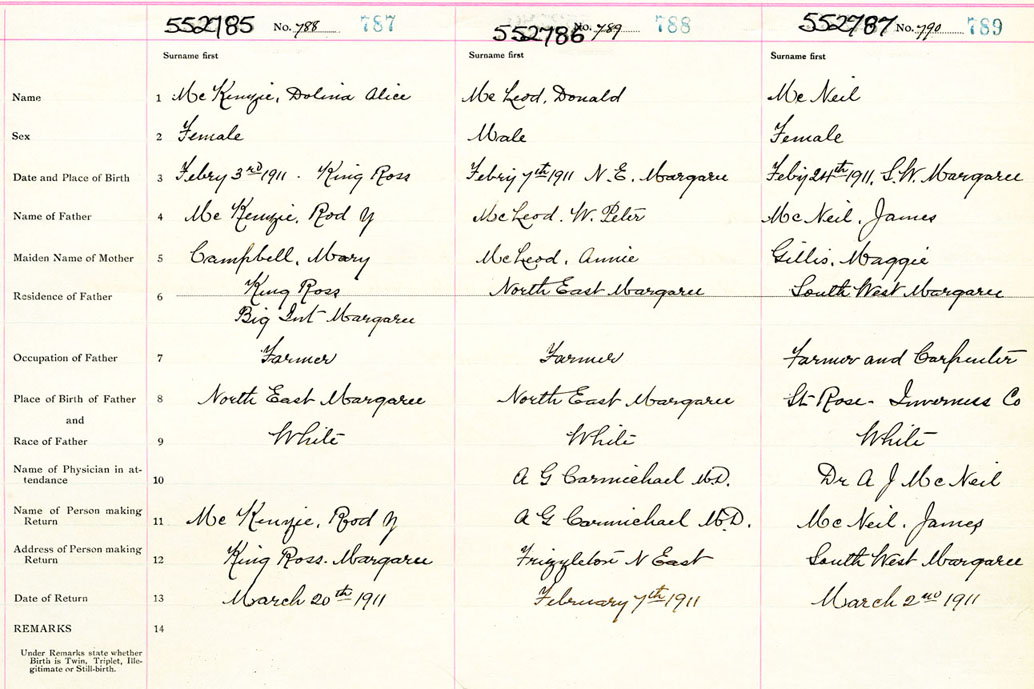 552785 No. 788 787 552786 No. 789 788 552787 No. 790 789
Surname first Surname first Surname first
Name 1 Mc Kenzie, Dolina Alice Mc Leod, Donald Mc Neil
Sex 2 Female Male Female
Date and Place of Birth 3 Febry 3rd 1911 - King Ross Febry 7th 1911 N.E. Margaree Feby 24th 1911, S.W. Margaree
Name of Father 4 Mc Kenzie, Rod Y McLeod. W. Peter Mc Neil, James
Maiden Name of Mother 5 Campbell, Mary McLeod, Annie Gillis, Maggie
Residence of Father 6 King Ross North East Margaree South West Margaree
Big Int Margaree
Occupation of Father 7 Farmer Farmer Farmer and Carpenter
Place of Birth of Father 8 North East Margaree North East Margaree St Rose - Inverness Co
and
Race of Father 9 White White White
Name of Physician in at-
tendance 10 A G Carmichael M.D. Dr A J McNeil
Name of Person making
Return 11 Mc Kenzie, Rod Y A G Carmichael M.D. Mc Neil, James
Address of Person making
Return 12 King Ross. Margaree Frizzleton N East South West Margaree
Date of Return 13 March 20th 1911 February 7th 1911 March 2nd 1911
REMARKS 14
Under Remarks state whether
Birth is Twin, Triplet, Ille-
gitimate or Still-birth.